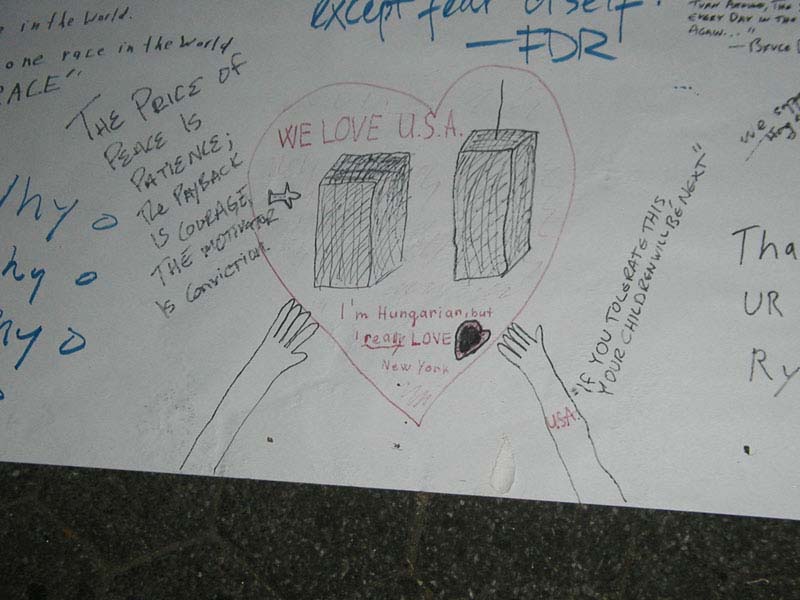 e in the World.
one race in the World
except fear itself.
—FDR
TURN AROUND, THE
EVERY DAY IN THE
AGAIN..."
—BRUCE
THE PRICE OF
PEACE IS
PATIENCE;
THE PAYBACK
IS COURAGE,
THE MOTIVATOR
IS CONVICTION.
WE LOVE U.S.A.
I'm Hungarian, but
I really LOVE
New York
U.S.A.
"IF YOU TOLERATE THIS,
YOUR CHILDREN WILL BE NEXT"
We
Why
hy
hy
Tha
UR
Ry